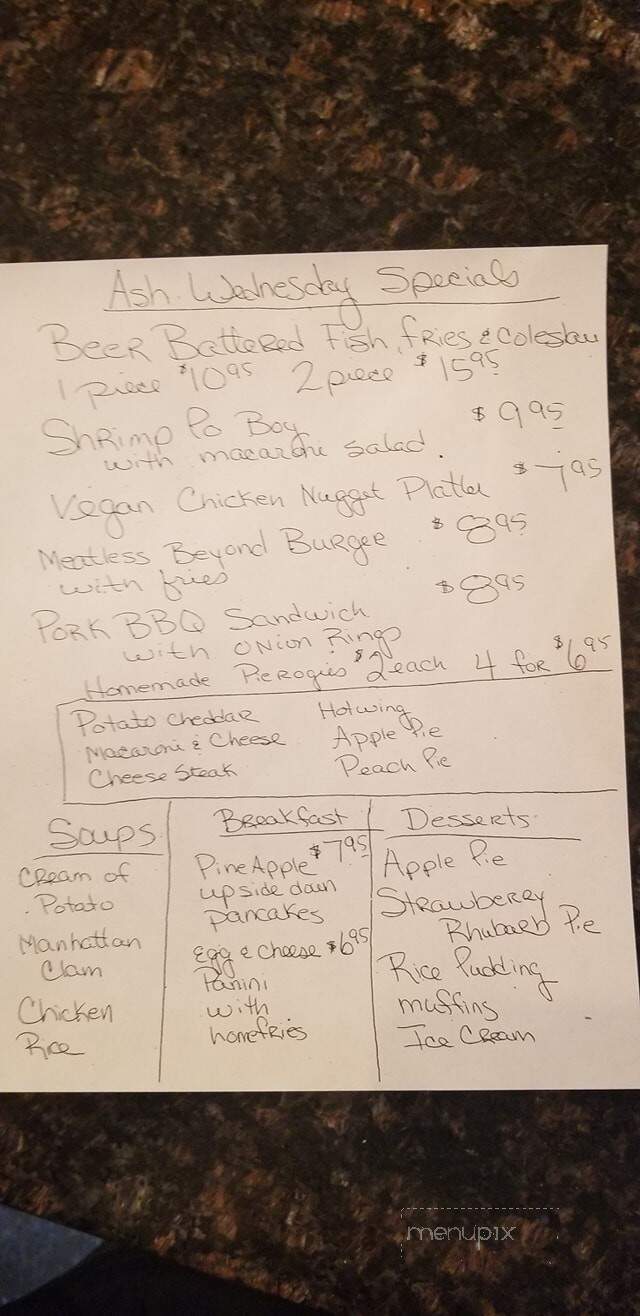 Ash Wednesday Specials
Beer Battered Fish, fries & coleslaw
1 piece $10.95 2 piece $15.95
Shrimp Po Boy $9.95
with macaroni salad.
Vegan Chicken Nugget Platter $7.95
Meatless Beyond Burger $8.95
with fries
Pork BBQ Sandwich $8.95
with onion Rings
Homemade Pierogies $2 each 4 for $6.95
Potato cheddar Hotwing
Macaroni & Cheese Apple Pie
Cheese Steak Peach Pie
Soups
Cream of
Potato
Manhattan
Clam
Chicken
Rice
Breakfast
PineApple $7.95
upside down
pancakes
Egg & Cheese $6.95
Panini
with
homefries
Desserts
Apple Pie
Strawberry
Rhubarb Pie
Rice Pudding
muffins
Ice Cream
menupix